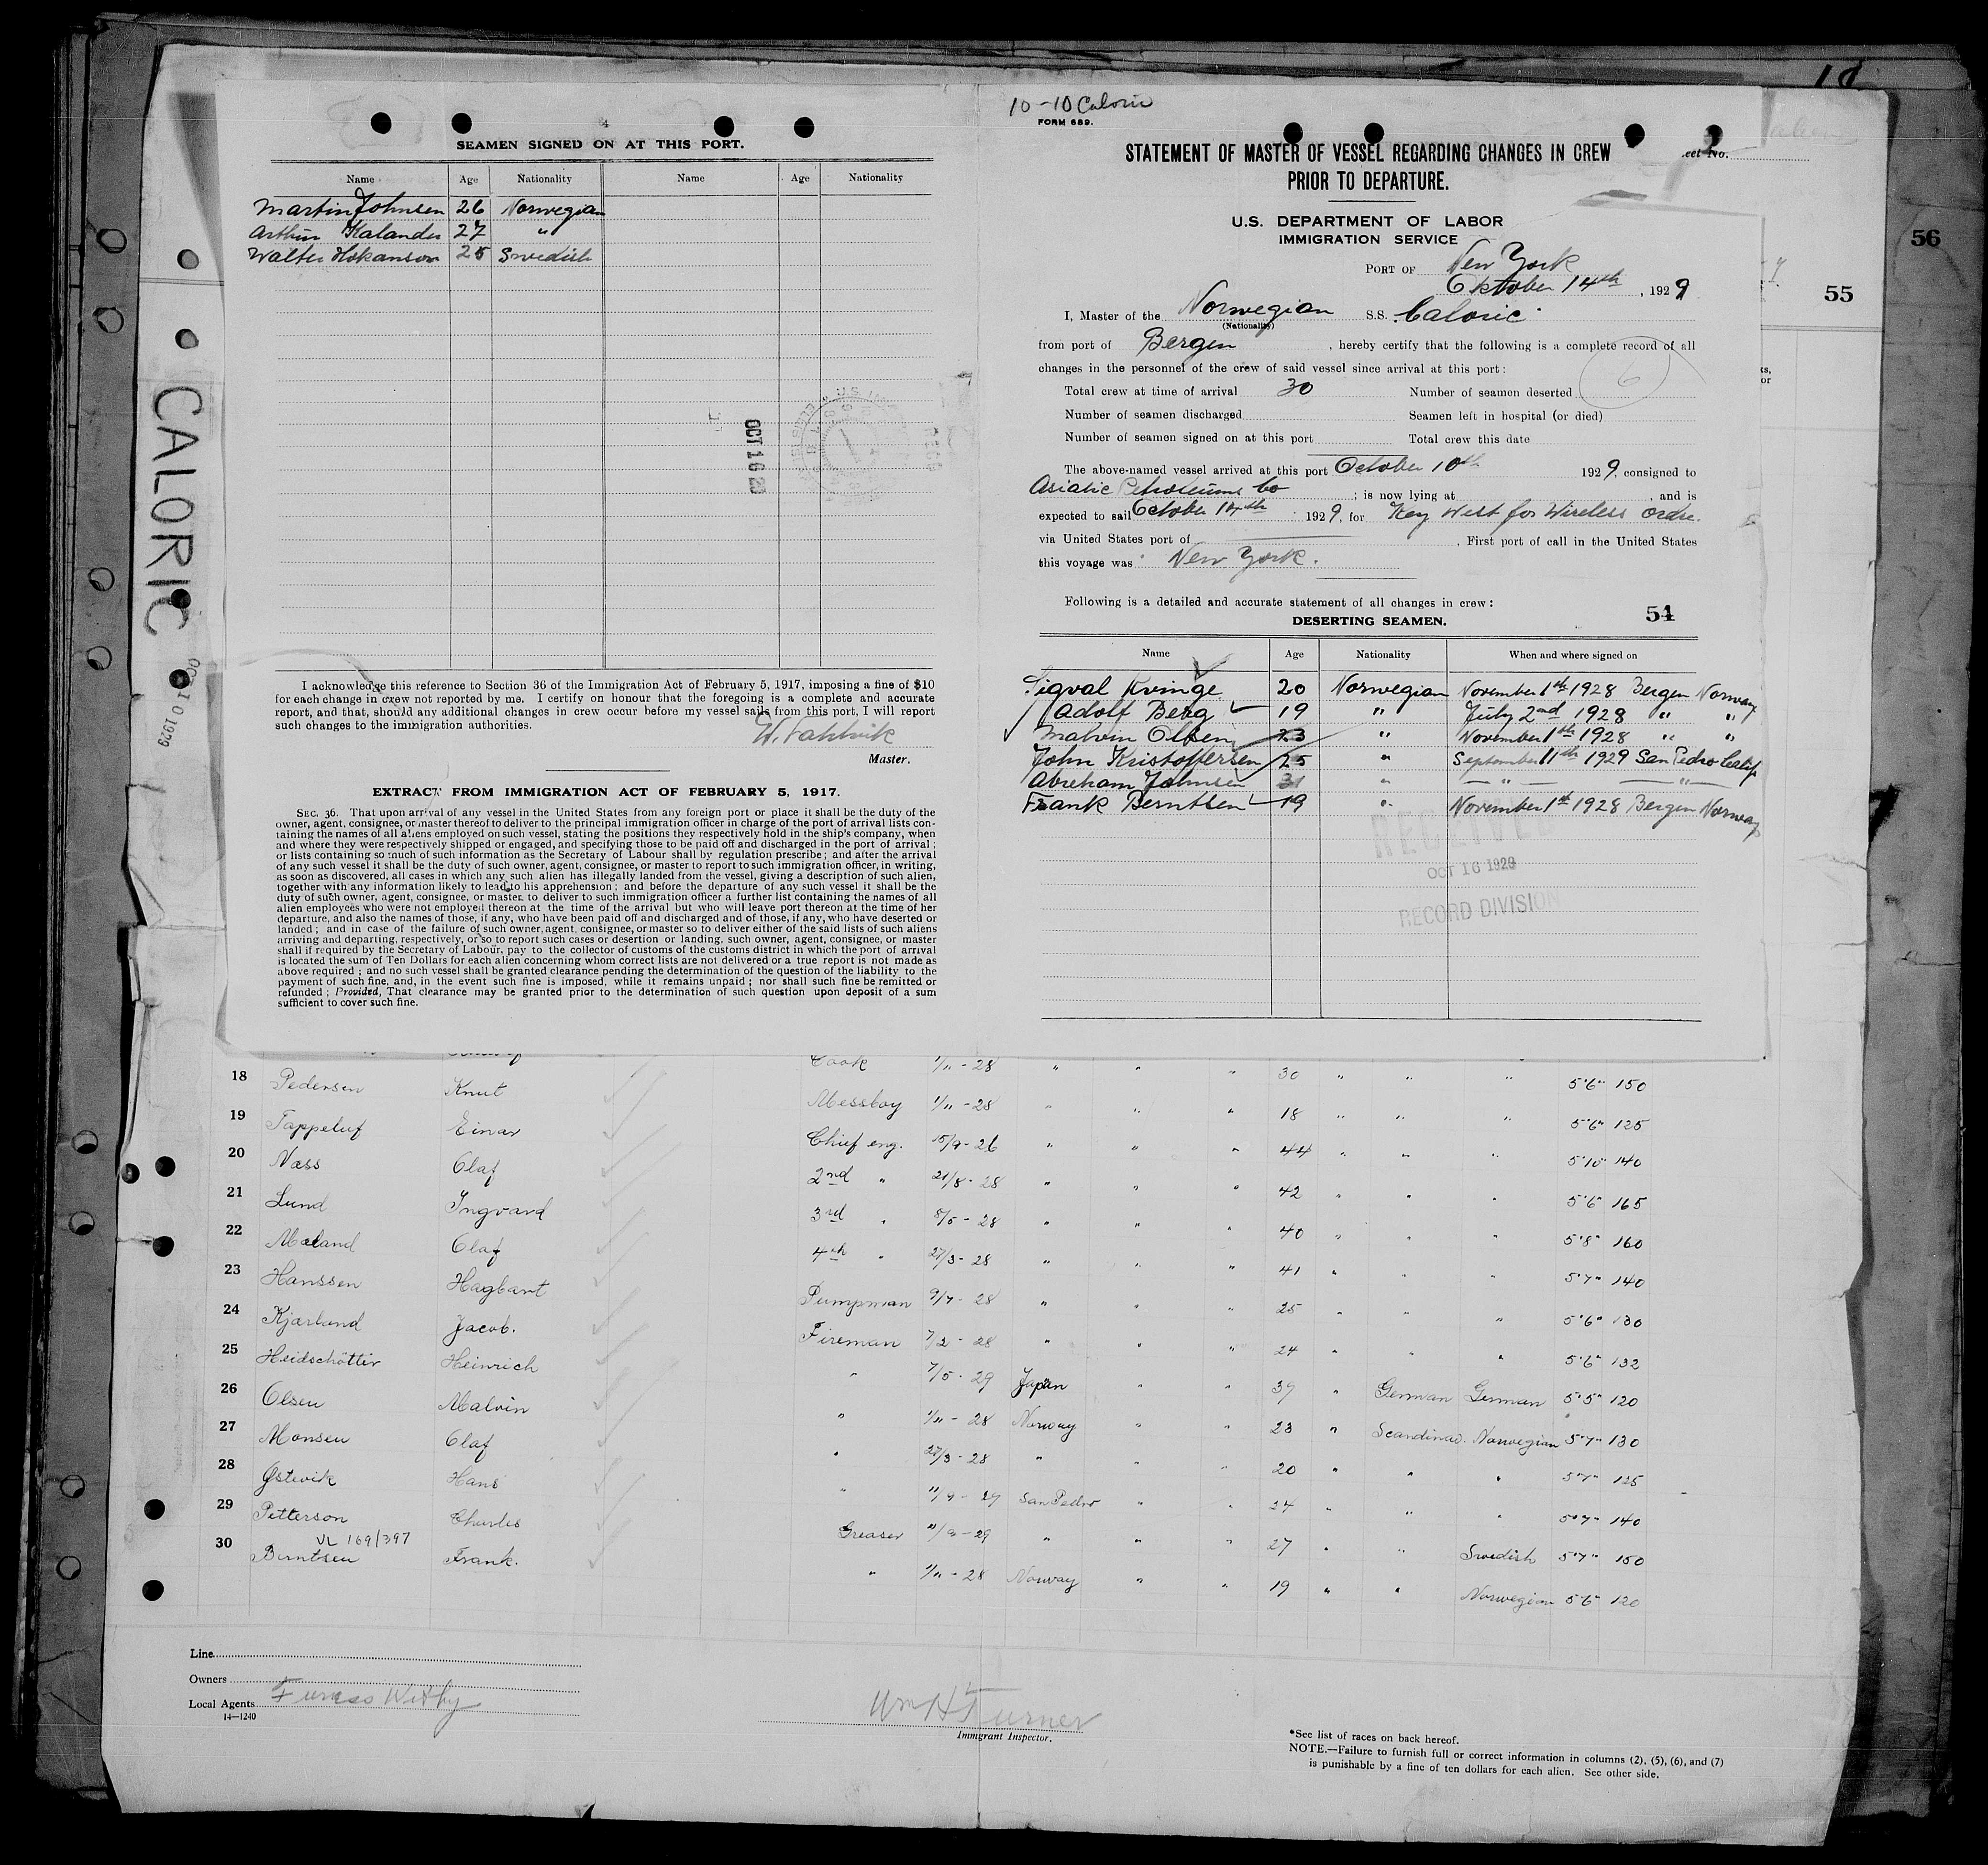 SEAMEN SIGNED ON AT THIS PORT.
Name Age Nationality Name Age Nationality
Martin Johnsen 26 Norwegian
Arthur Kalander 27 "
Walter Hokanson 25 Swedish
OCT 16 29
I acknowledge this reference to Section 36 of the Immigration Act of February 5, 1917, imposing a fine of $10
for each change in crew not reported by me. I certify on honour that the foregoing is a complete and accurate
report, and that, should any additional changes in crew occur before my vessel sails from this port, I will report
such changes to the immigration authorities.
Master.
EXTRACT FROM IMMIGRATION ACT OF FEBRUARY 5, 1917.
SEC. 36. That upon arrival of any vessel in the United States from any foreign port or place it shall be the duty of the
owner, agent, consignee, or master thereof to deliver to the principal immigration officer in charge of the port of arrival lists con-
taining the names of all aliens employed on such vessel, stating the positions they respectively hold in the ship's company, when
and where they were respectively shipped or engaged, and specifying those to be paid off and discharged in the port of arrival;
or lists containing so much of such information as the Secretary of Labour shall by regulation prescribe; and after the arrival
of any such vessel it shall be the duty of such owner, agent, consignee, or master to report to such immigration officer, in writing,
as soon as discovered, all cases in which any such alien has illegally landed from the vessel, giving a description of such alien,
together with any information likely to lead to his apprehension; and before the departure of any such vessel it shall be the
duty of such owner, agent, consignee, or master to deliver to such immigration officer a further list containing the names of all
alien employees who were not employed thereon at the time of the arrival but who will leave port thereon at the time of her
departure, and also the names of those, if any, who have been paid off and discharged and of those, if any, who have deserted or
landed; and in case of the failure of such owner, agent, consignee, or master so to deliver either of the said lists of such aliens
arriving and departing, respectively, or so to report such cases or desertion or landing, such owner, agent, consignee, or master
shall if required by the Secretary of Labour, pay to the collector of customs of the customs district in which the port of arrival
is located the sum of Ten Dollars for each alien concerning whom correct lists are not delivered or a true report is not made as
above required; and no such vessel shall be granted clearance pending the determination of the question of the liability to the
payment of such fine, and, in the event such fine is imposed, while it remains unpaid; nor shall such fine be remitted or
refunded; Provided, That clearance may be granted prior to the determination of such question upon deposit of a sum
sufficient to cover such fine.
CALORIC
OCT 10 1929
10-10 Caloric
FORM 689.
STATEMENT OF MASTER OF VESSEL REGARDING CHANGES IN CREW
PRIOR TO DEPARTURE.
eet No.
U.S. DEPARTMENT OF LABOR
IMMIGRATION SERVICE
PORT OF New York
Oktober 14th, 1929
I, Master of the Norwegian S.S. Caloric
(Nationality)
from port of Bergen, hereby certify that the following is a complete record of all
changes in the personnel of the crew of said vessel since arrival at this port:
Total crew at time of arrival 30 Number of seamen deserted 6
Number of seamen discharged Seamen left in hospital (or died)
Number of seamen signed on at this port Total crew this date
The above-named vessel arrived at this port October 10th 1929, consigned to
Asiatic Petroleums Co; is now lying at, and is
expected to sail October 14th 1929, for Key West for Wireless ordre.
via United States port of. First port of call in the United States
this voyage was New York.
Following is a detailed and accurate statement of all changes in crew: 54
DESERTING SEAMEN.
Name Age Nationality When and where signed on
Sigval Kvinge 20 Norwegian November 1st 1928 Bergen Norway
Adolf Berg 19 " July 2nd 1928 " "
Malvin Olsen 23 " November 1st 1928 " "
John Kristoffersen 25 " September 11th 1929 San Pedro Calif
Abreham Johnsen 31 " — " — — " —
Frank Berntsen 19 " November 1st 1928 Bergen Norway
RECEIVED
OCT 16 1929
RECORD DIVISION
55
56
Cook 1/11 - 28 " " " 30 " " " 5'6" 150
18 Pedersen Knut Messboy 1/11 - 28 " " " 18 " " " 5'6" 125
19 Tappeluf Einar Chief eng. 15/9 - 26 " " " 44 " " " 5'10" 140
20 Næss Olaf 2nd " 21/8 - 28 " " " 42 " " " 5'6" 165
21 Lund Ingvard 3rd " 8/5 - 28 " " " 40 " " " 5'8" 160
22 Mæland Olaf 4th " 27/3 - 28 " " " 41 " " " 5'7" 140
23 Hanssen Hagbart Pumpman 9/7 - 28 " " " 25 " " " 5'6" 130
24 Kjærland Jacob. Fireman 7/2 - 28 " " " 24 " " " 5'6" 132
25 Heidschötter Heinrich " 7/5 - 29 Japan " " 39 " German German 5'5" 120
26 Olsen Malvin " 1/11 - 28 Norway " " 23 " Scandinav. Norwegian 5'7" 130
27 Monsen Olaf " 27/3 - 28 " " " 20 " " " 5'7" 125
28 Østevik Hans " 11/9 - 29 San Pedro " " 24 " " " 5'7" 140
29 Petterson Charles Greaser 11/9 - 29 " " " 27 " " Swedish 5'7" 150
VL 169/397
30 Berntsen Frank. " 1/11 - 28 Norway " " 19 " " Norwegian 5'6" 120
Line
Owners
Local Agents Furness Withy
14—1240
Wm H Turner
Immigrant Inspector.
*See list of races on back hereof.
NOTE.—Failure to furnish full or correct information in columns (2), (5), (6), and (7)
is punishable by a fine of ten dollars for each alien. See other side.